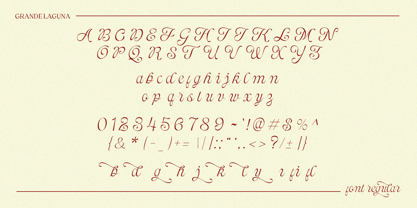 GRANDE LAGUNA
A B C D E F G H I J K L M N
O P Q R S T U V W X Y Z
a b c d e f g h i j k l m n
o p q r s t u v w x y z
0 1 2 3 4 5 6 7 8 9 ~ ' ! @ # $ % ^
{ & * ( - _ ) + = \ | [ : ; " ' , . < > ? / ± | ] }
font regular